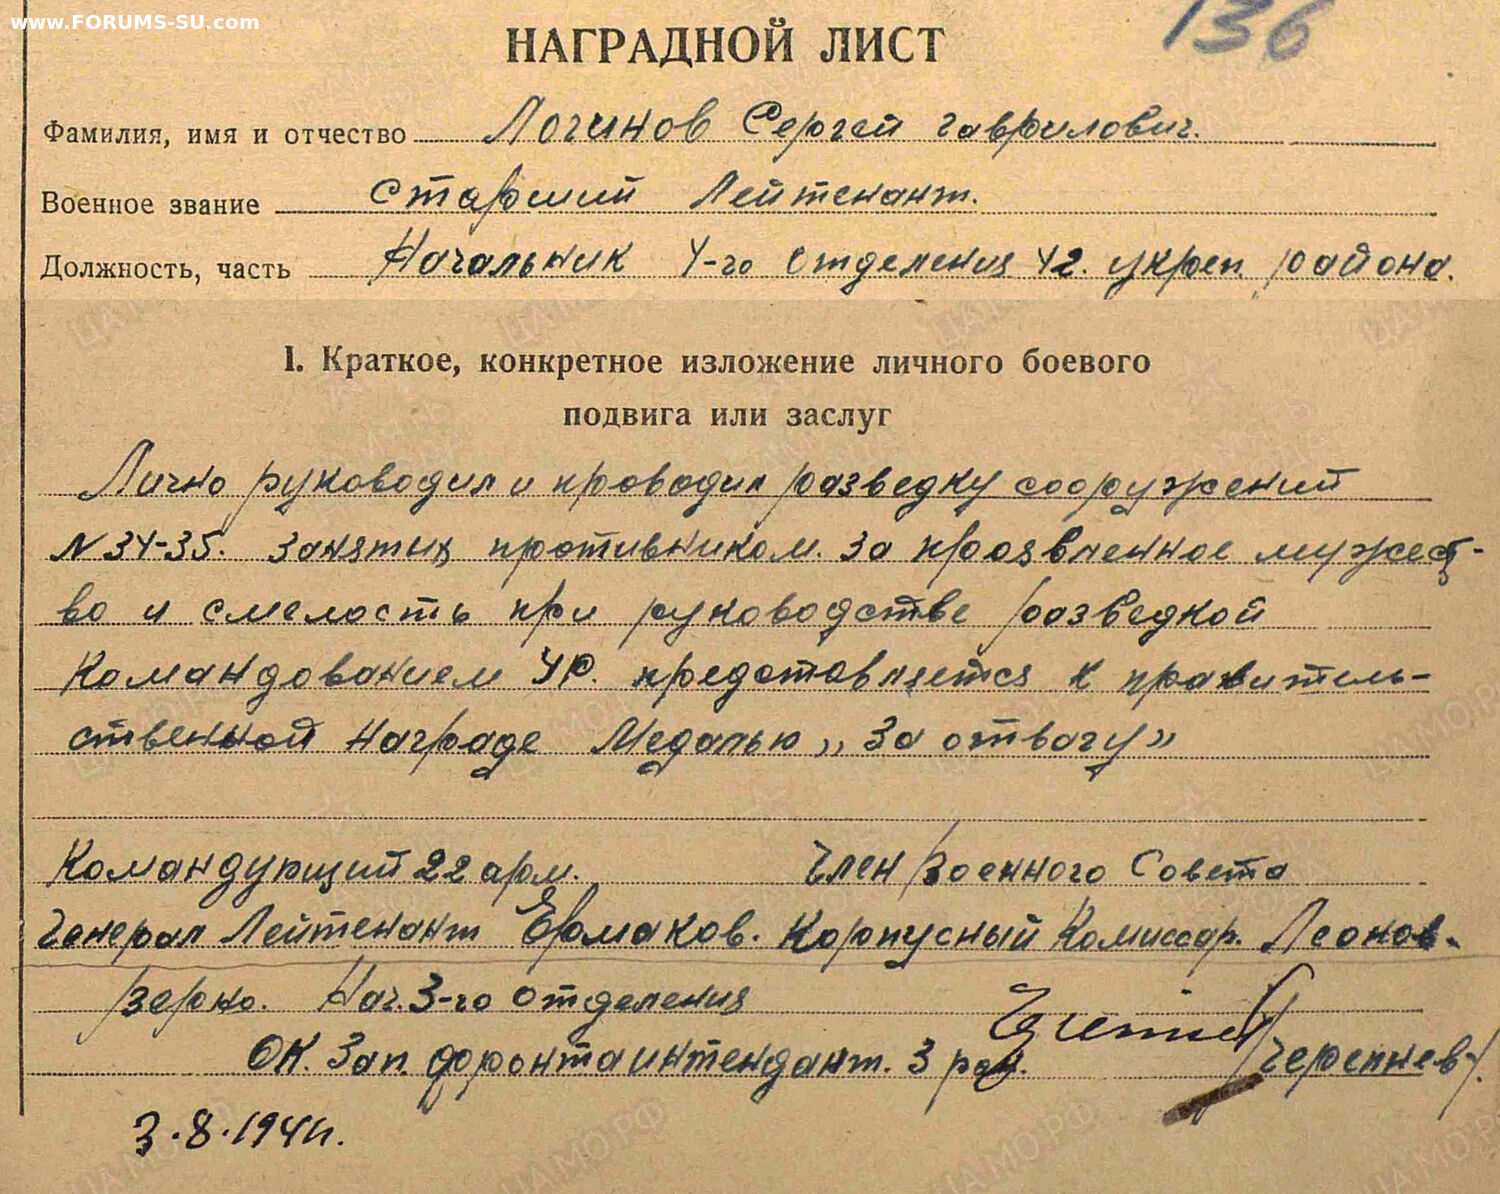 www.FORUMS-SU.com
136
НАГРАДНОЙ ЛИСТ
Фамилия, имя и отчество Логинов Сергей Гаврилович.
Военное звание Старший Лейтенант.
Должность, часть Начальник 4-го отделения 42. укреп. района.
I. Краткое, конкретное изложение личного боевого
подвига или заслуг
Лично руководил и проводил разведку сооружений
N 34-35. Занятых противником. За проявленное мужест-
во и смелость при руководстве разведкой
Командованием УР. предстовляется к правитель-
ственной награде Медалью „За отвагу"
Командующий 22 арм. Член Военного Совета
Генерал Лейтенант Ермаков. Корпусный Комиссар. Леонов.
Верно. Нач. 3-го отделения
ОК. Зап. фронта интендант. 3 ран.
/Черепнев/.
3.8.1941г.
ЦАМО РФ